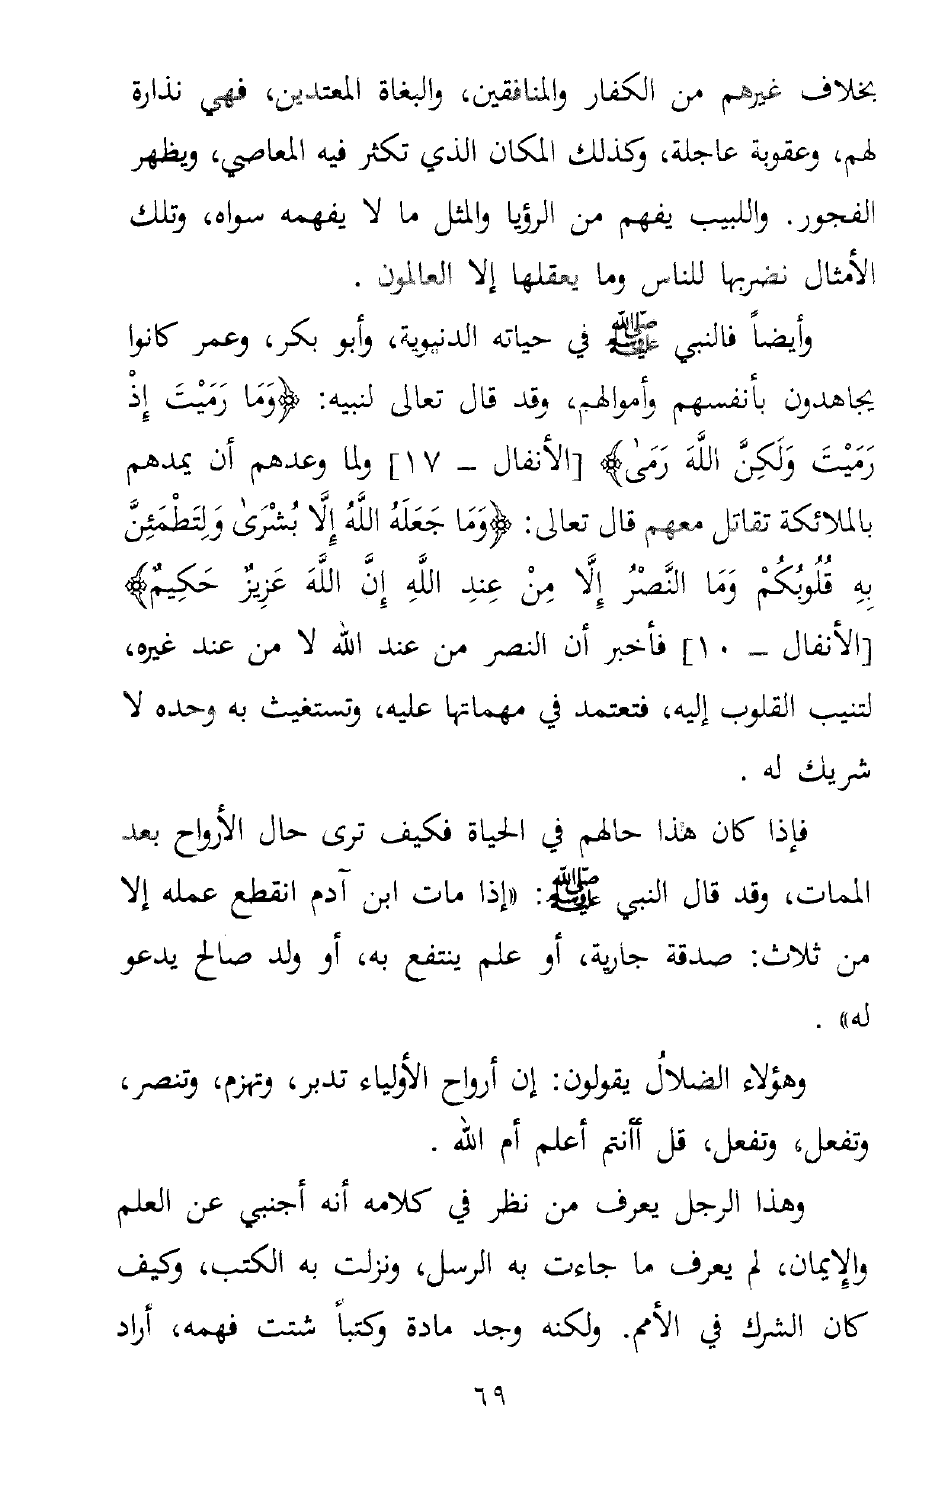 بخلاف غيرهم من الكفار والمنافقين، والبغاة المعتدين، فهي نذارة
لهم، وعقوبة عاجلة، وكذلك المكان الذي تكثر فيه المعاصي، ويظهر
الفجور. واللبيب يفهم من الرؤيا والمثل ما لا يفهمه سواه، وتلك
الأمثال نضربها للناس وما يعقلها إلا العالمون .
وأيضاً فالنبي ﷺ في حياته الدنيوية، وأبو بكر، وعمر كانوا
يجاهدون بأنفسهم وأموالهم، وقد قال تعالى لنبيه: ﴿وَمَا رَمَيْتَ إِذْ
رَمَيْتَ وَلَكِنَّ اللَّهَ رَمَىٰ﴾ [الأنفال ــ ١٧] ولما وعدهم أن يمدهم
بالملائكة تقاتل معهم قال تعالى: ﴿وَمَا جَعَلَهُ اللَّهُ إِلَّا بُشْرَىٰ وَلِتَطْمَئِنَّ
بِهِ قُلُوبُكُمْ وَمَا النَّصْرُ إِلَّا مِنْ عِندِ اللَّهِ إِنَّ اللَّهَ عَزِيزٌ حَكِيمٌ﴾
[الأنفال ــ ١٠] فأخبر أن النصر من عند الله لا من عند غيره،
لتنيب القلوب إليه، فتعتمد في مهماتها عليه، وتستغيث به وحده لا
شريك له .
فإذا كان هذا حالهم في الحياة فكيف ترى حال الأرواح بعد
الممات، وقد قال النبي ﷺ: «إذا مات ابن آدم انقطع عمله إلا
من ثلاث: صدقة جارية، أو علم ينتفع به، أو ولد صالح يدعو
له» .
وهؤلاء الضلالُ يقولون: إن أرواح الأولياء تدبر، وتهزم، وتنصر،
وتفعل، وتفعل، قل أأنتم أعلم أم الله .
وهذا الرجل يعرف من نظر في كلامه أنه أجنبي عن العلم
والإيمان، لم يعرف ما جاءت به الرسل، ونزلت به الكتب، وكيف
كان الشرك في الأمم. ولكنه وجد مادة وكتباً شتت فهمه، أراد
٦٩